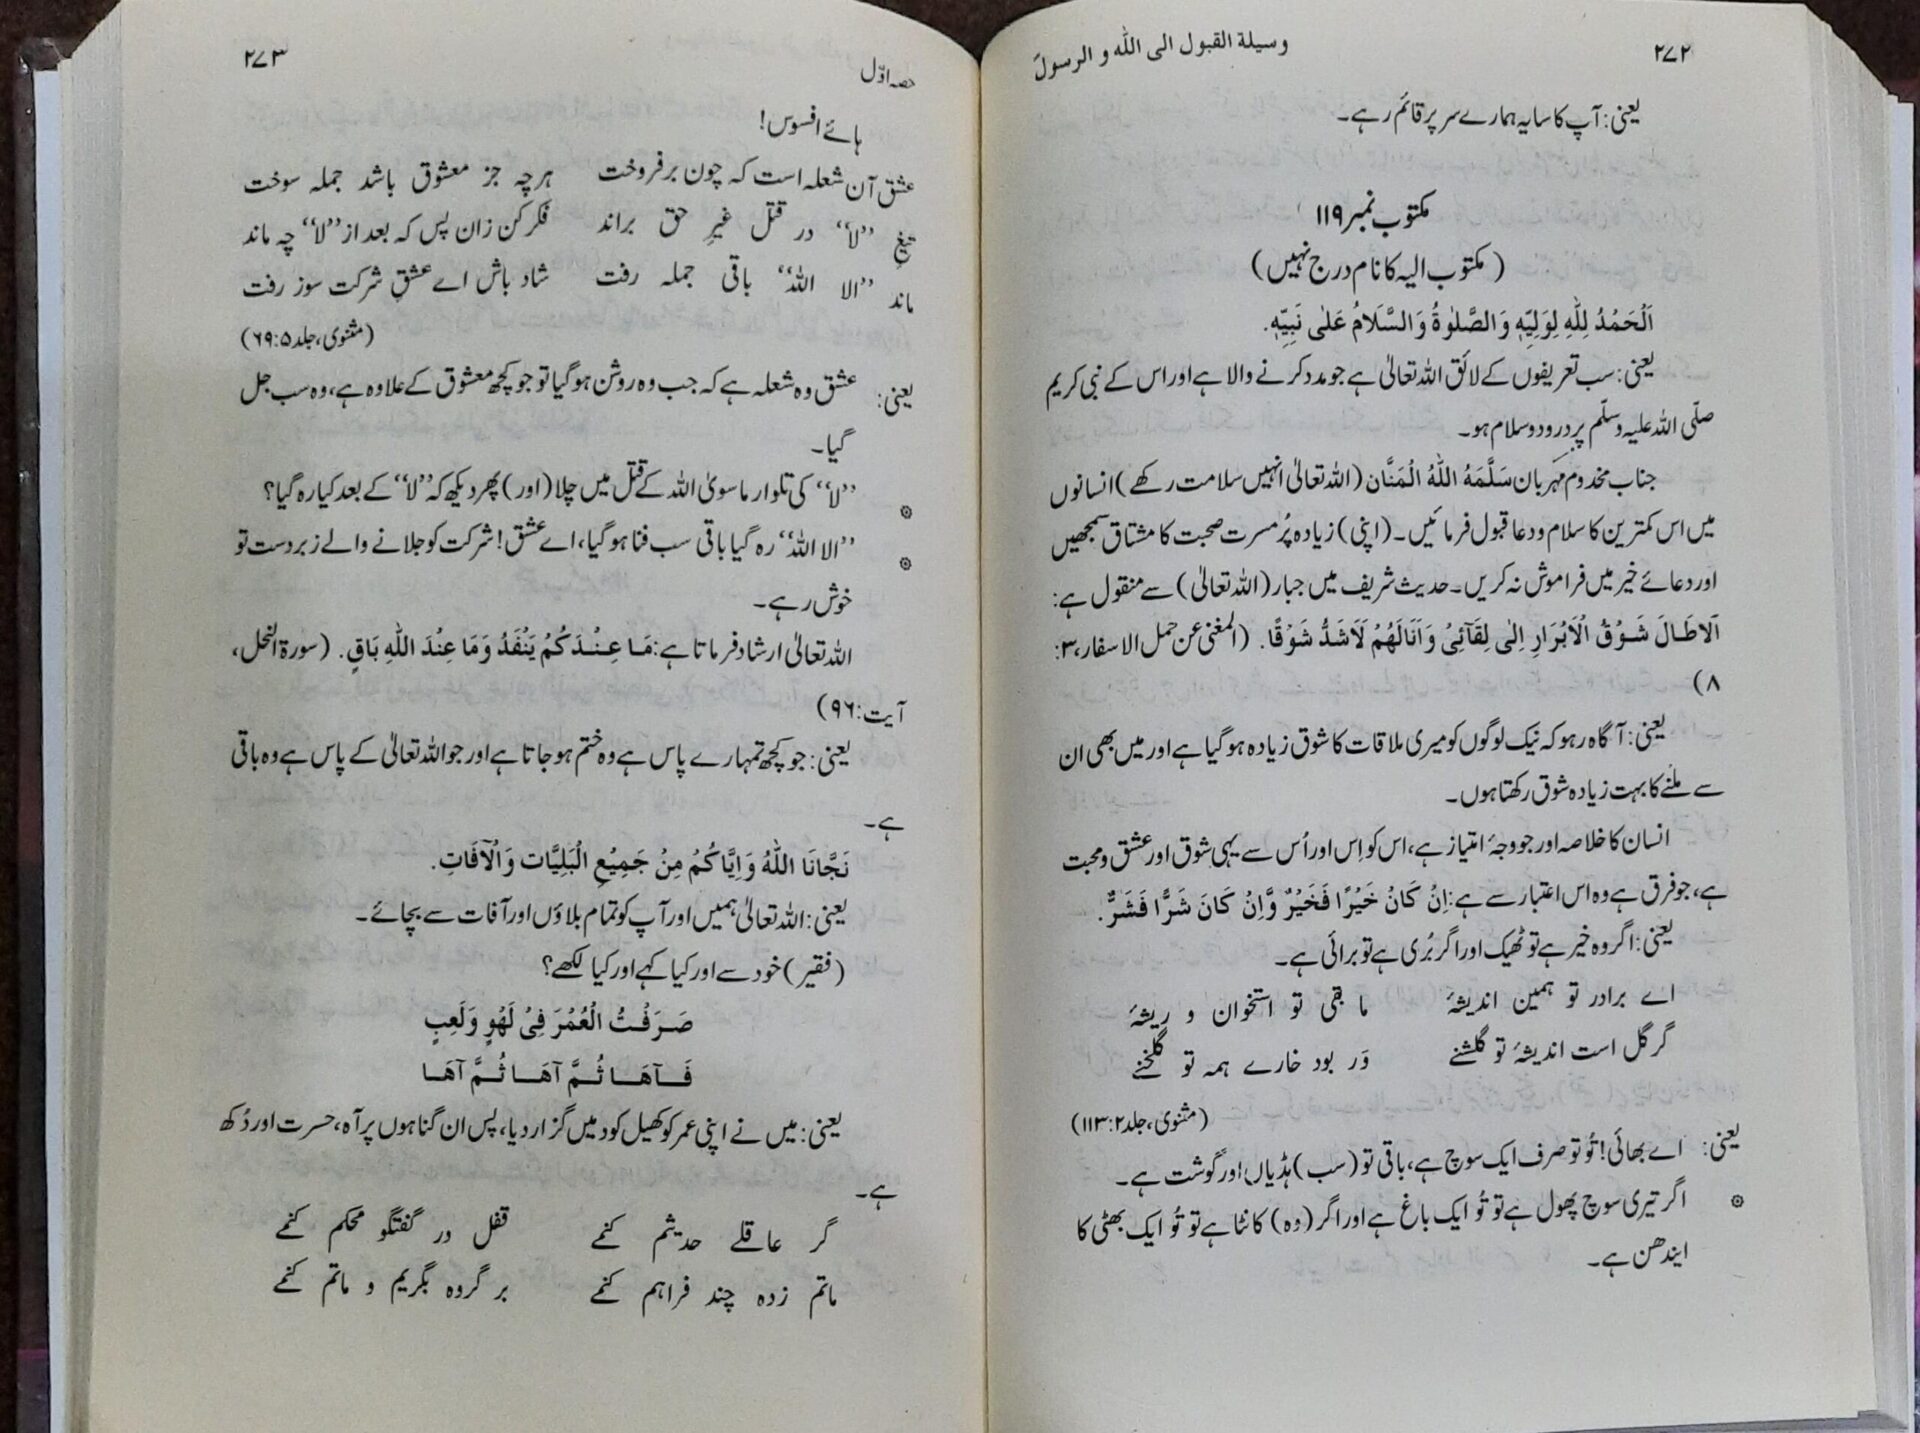 ۲۷۲
وسیلة القبول الی الله و الرسولؐ
یعنی: آپ کا سایہ ہمارے سر پر قائم رہے۔
مکتوب نمبر ۱۱۹
(مکتوب الیہ کا نام درج نہیں)
اَلْحَمْدُ لِلّٰهِ لِوَلِيِّهٖ وَالصَّلٰوةُ وَالسَّلَامُ عَلٰى نَبِيِّهٖ.
یعنی: سب تعریفوں کے لائق اللہ تعالیٰ ہے جو مدد کرنے والا ہے اور اس کے نبی کریم
صلّی اللہ علیہ وسلّم پر درود و سلام ہو۔
جناب مخدوم مہربان سَلَّمَهُ اللّٰهُ الْمَنَّان (اللہ تعالیٰ انہیں سلامت رکھے) انسانوں
میں اس کمترین کا سلام و دعا قبول فرمائیں۔ (اپنی) زیادہ پُر مسرت صحبت کا مشتاق سمجھیں
اور دعائے خیر میں فراموش نہ کریں۔ حدیث شریف میں جبار (اللہ تعالیٰ) سے منقول ہے:
اَلَاطَالَ شَوْقُ الْاَبْرَارِ اِلٰى لِقَآئِىْ وَاَنَالَهُمْ لَاَشَدُّ شَوْقًا. (المغنی عن حمل الاسفار، ۳:
۸)
یعنی: آگاہ رہو کہ نیک لوگوں کو میری ملاقات کا شوق زیادہ ہو گیا ہے اور میں بھی ان
سے ملنے کا بہت زیادہ شوق رکھتا ہوں۔
انسان کا خلاصہ اور جو وجۂ امتیاز ہے، اس کو اِس اور اُس سے یہی شوق اور عشق و محبت
ہے، جو فرق ہے وہ اس اعتبار سے ہے: اِنْ كَانْ خَيْرًا فَخَيْرٌ وَّاِنْ كَانَ شَرًّا فَشَرٌّ.
یعنی: اگر وہ خیر ہے تو ٹھیک اور اگر بُری ہے تو برائی ہے۔
اے برادر تو ہمین اندیشۂ ما بقی تو استخوان و ریشۂ
گر گل است اندیشۂ تو گلشنے وَر بود خارے ہمہ تو گلخنے
(مثنوی، جلد ۲:۱۱۳)
یعنی: اے بھائی! تُو تو صرف ایک سوچ ہے، باقی تو (سب) ہڈیاں اور گوشت ہے۔
۞ اگر تیری سوچ پھول ہے تو تُو ایک باغ ہے اور اگر (وہ) کانٹا ہے تو تُو ایک بھٹی کا
ایندھن ہے۔
حصہ اوّل
۲۷۳
ہائے افسوس!
عشق آن شعلہ است کہ چون بر فروخت ہرچہ جز معشوق باشد جملہ سوخت
تیغِ ’’لا‘‘ در قتل غیرِ حق براند فکر کن زان پس کہ بعد از ’’لا‘‘ چہ ماند
ماند ’’الا اللہ‘‘ باقی جملہ رفت شاد باش اے عشقِ شرکت سوز رفت
(مثنوی، جلد ۵:۶۹)
یعنی: عشق وہ شعلہ ہے کہ جب وہ روشن ہو گیا تو جو کچھ معشوق کے علاوہ ہے، وہ سب جل
گیا۔
۞ ’’لا‘‘ کی تلوار ماسویٰ اللہ کے قتل میں چلا (اور) پھر دیکھ کہ ’’لا‘‘ کے بعد کیا رہ گیا؟
۞ ’’الا اللہ‘‘ رہ گیا باقی سب فنا ہو گیا، اے عشق! شرکت کو جلانے والے زبردست تو
خوش رہے۔
اللہ تعالیٰ ارشاد فرماتا ہے: مَا عِنْدَكُمْ يَنْفَدُ وَمَا عِنْدَ اللّٰهِ بَاقٍ. (سورۃ النحل،
آیت: ۹۶)
یعنی: جو کچھ تمہارے پاس ہے وہ ختم ہو جاتا ہے اور جو اللہ تعالیٰ کے پاس ہے وہ باقی
ہے۔
نَجَّانَا اللّٰهُ وَاِيَّاكُمْ مِنْ جَمِيْعِ الْبَلِيَّات وَالْآفَاتِ.
یعنی: اللہ تعالیٰ ہمیں اور آپ کو تمام بلاؤں اور آفات سے بچائے۔
(فقیر) خود سے اور کیا کہے اور کیا لکھے؟
صَرَفْتُ الْعُمْرَ فِىْ لَهْوٍ وَلَعِبٍ
فَآهَا ثُمَّ آهَا ثُمَّ آهَا
یعنی: میں نے اپنی عمر کو کھیل کود میں گزار دیا، پس ان گناہوں پر آہ، حسرت اور دُکھ
ہے۔
گر عاقلے حدیثم کنمے قفل در گفتگو محکم کنمے
ماتم زدہ چند فراہم کنمے بر گروہ بگریم و ماتم کنمے